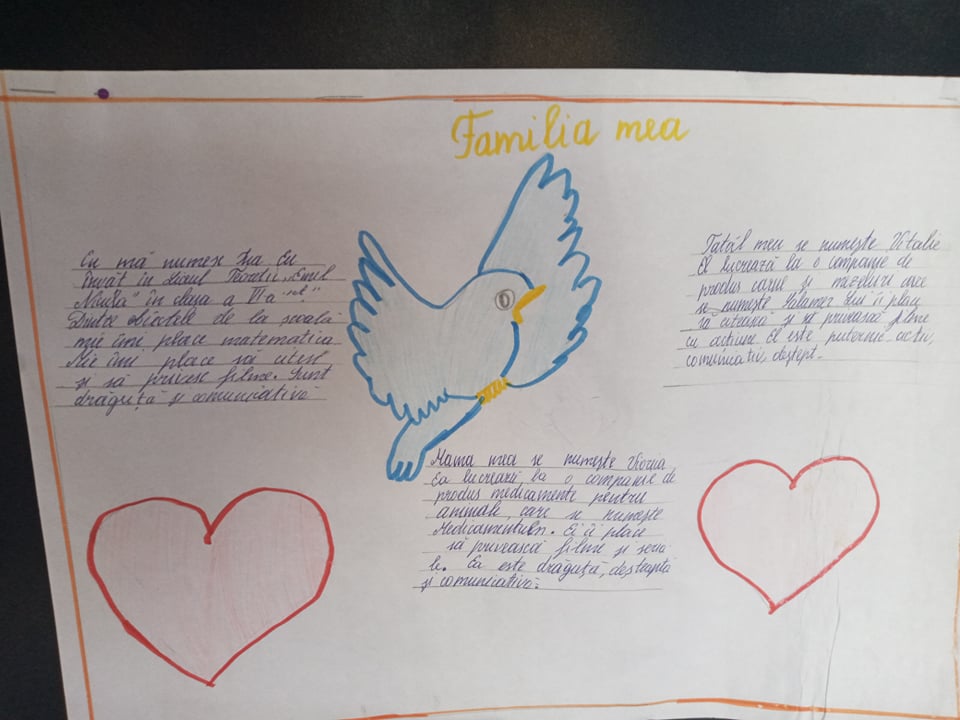 Familia mea
Eu mă numesc Ina Eu
învăt în Liceul Teoretic „Emil
Nicula" în clasa a VI-a
Dintre obictele de la școală
mie îmi place matematica
Mie îmi place să citesc
și să privesc filme. Sunt
drăguță și comunicativă
Tatăl meu se numește Vitalie
El lucrează la o companie de
produs carni și mezeluri care
se numește Salamer Lui îi place
să citească și să privească filme
cu actiune El este puternic activ,
comunicativ, deștept.
Mama mea se numește Viorica
Ea lucrează la o companie de
produs medicamente pentru
animale, care se numește
. Ei îi place
să privească filme și seria
le. Ea este drăguță, deșteaptă
și comunicativă.